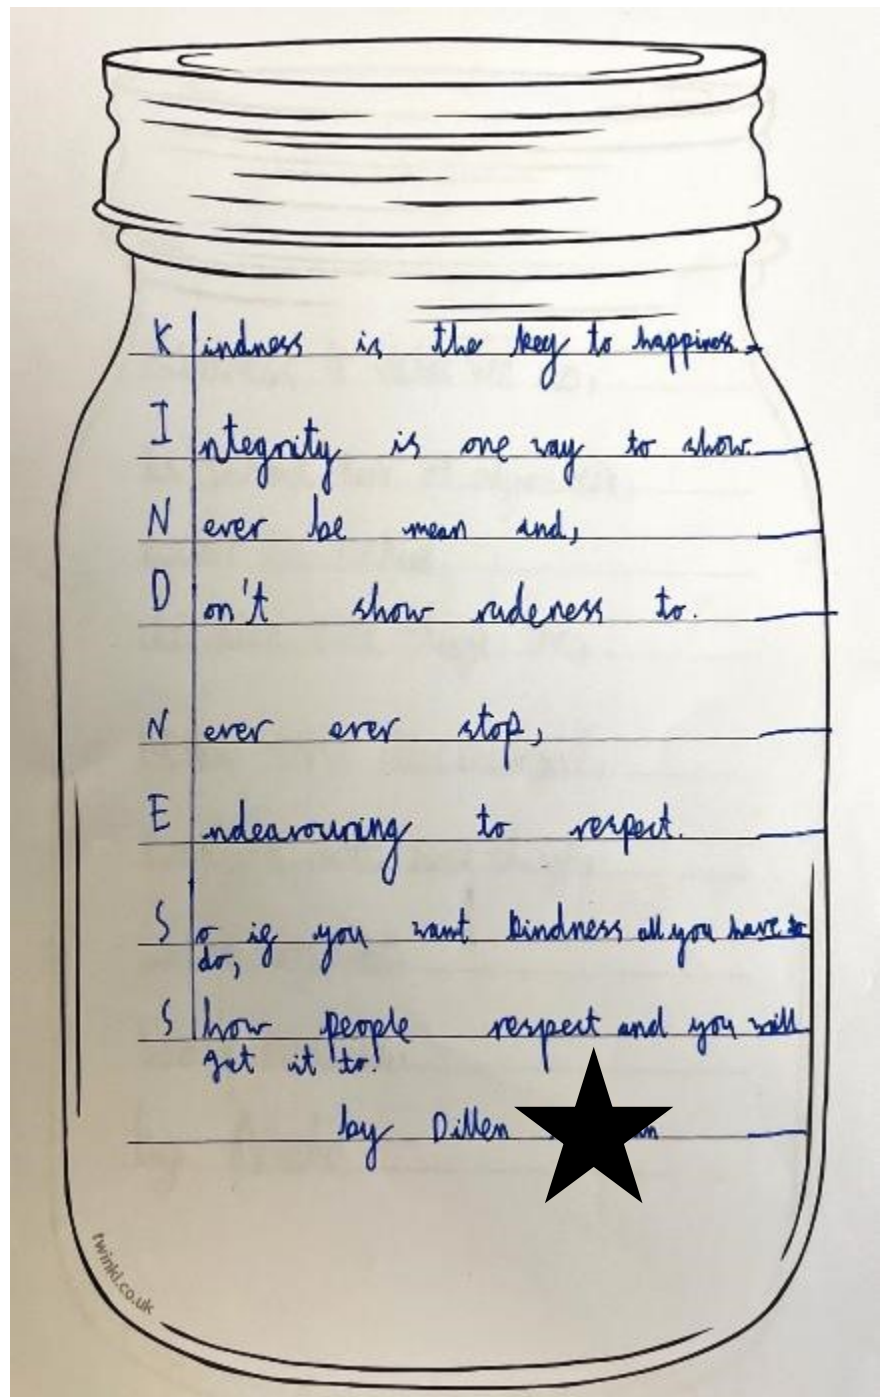 Kindness is the key to happiness.
Integrity is one way to show.
Never be mean and,
Don't show rudeness to.
Never ever stop,
Endeavouring to respect.
So if you want kindness all you have to
do,
Show people respect and you will
get it to!
by Dillen
twinkl.co.uk